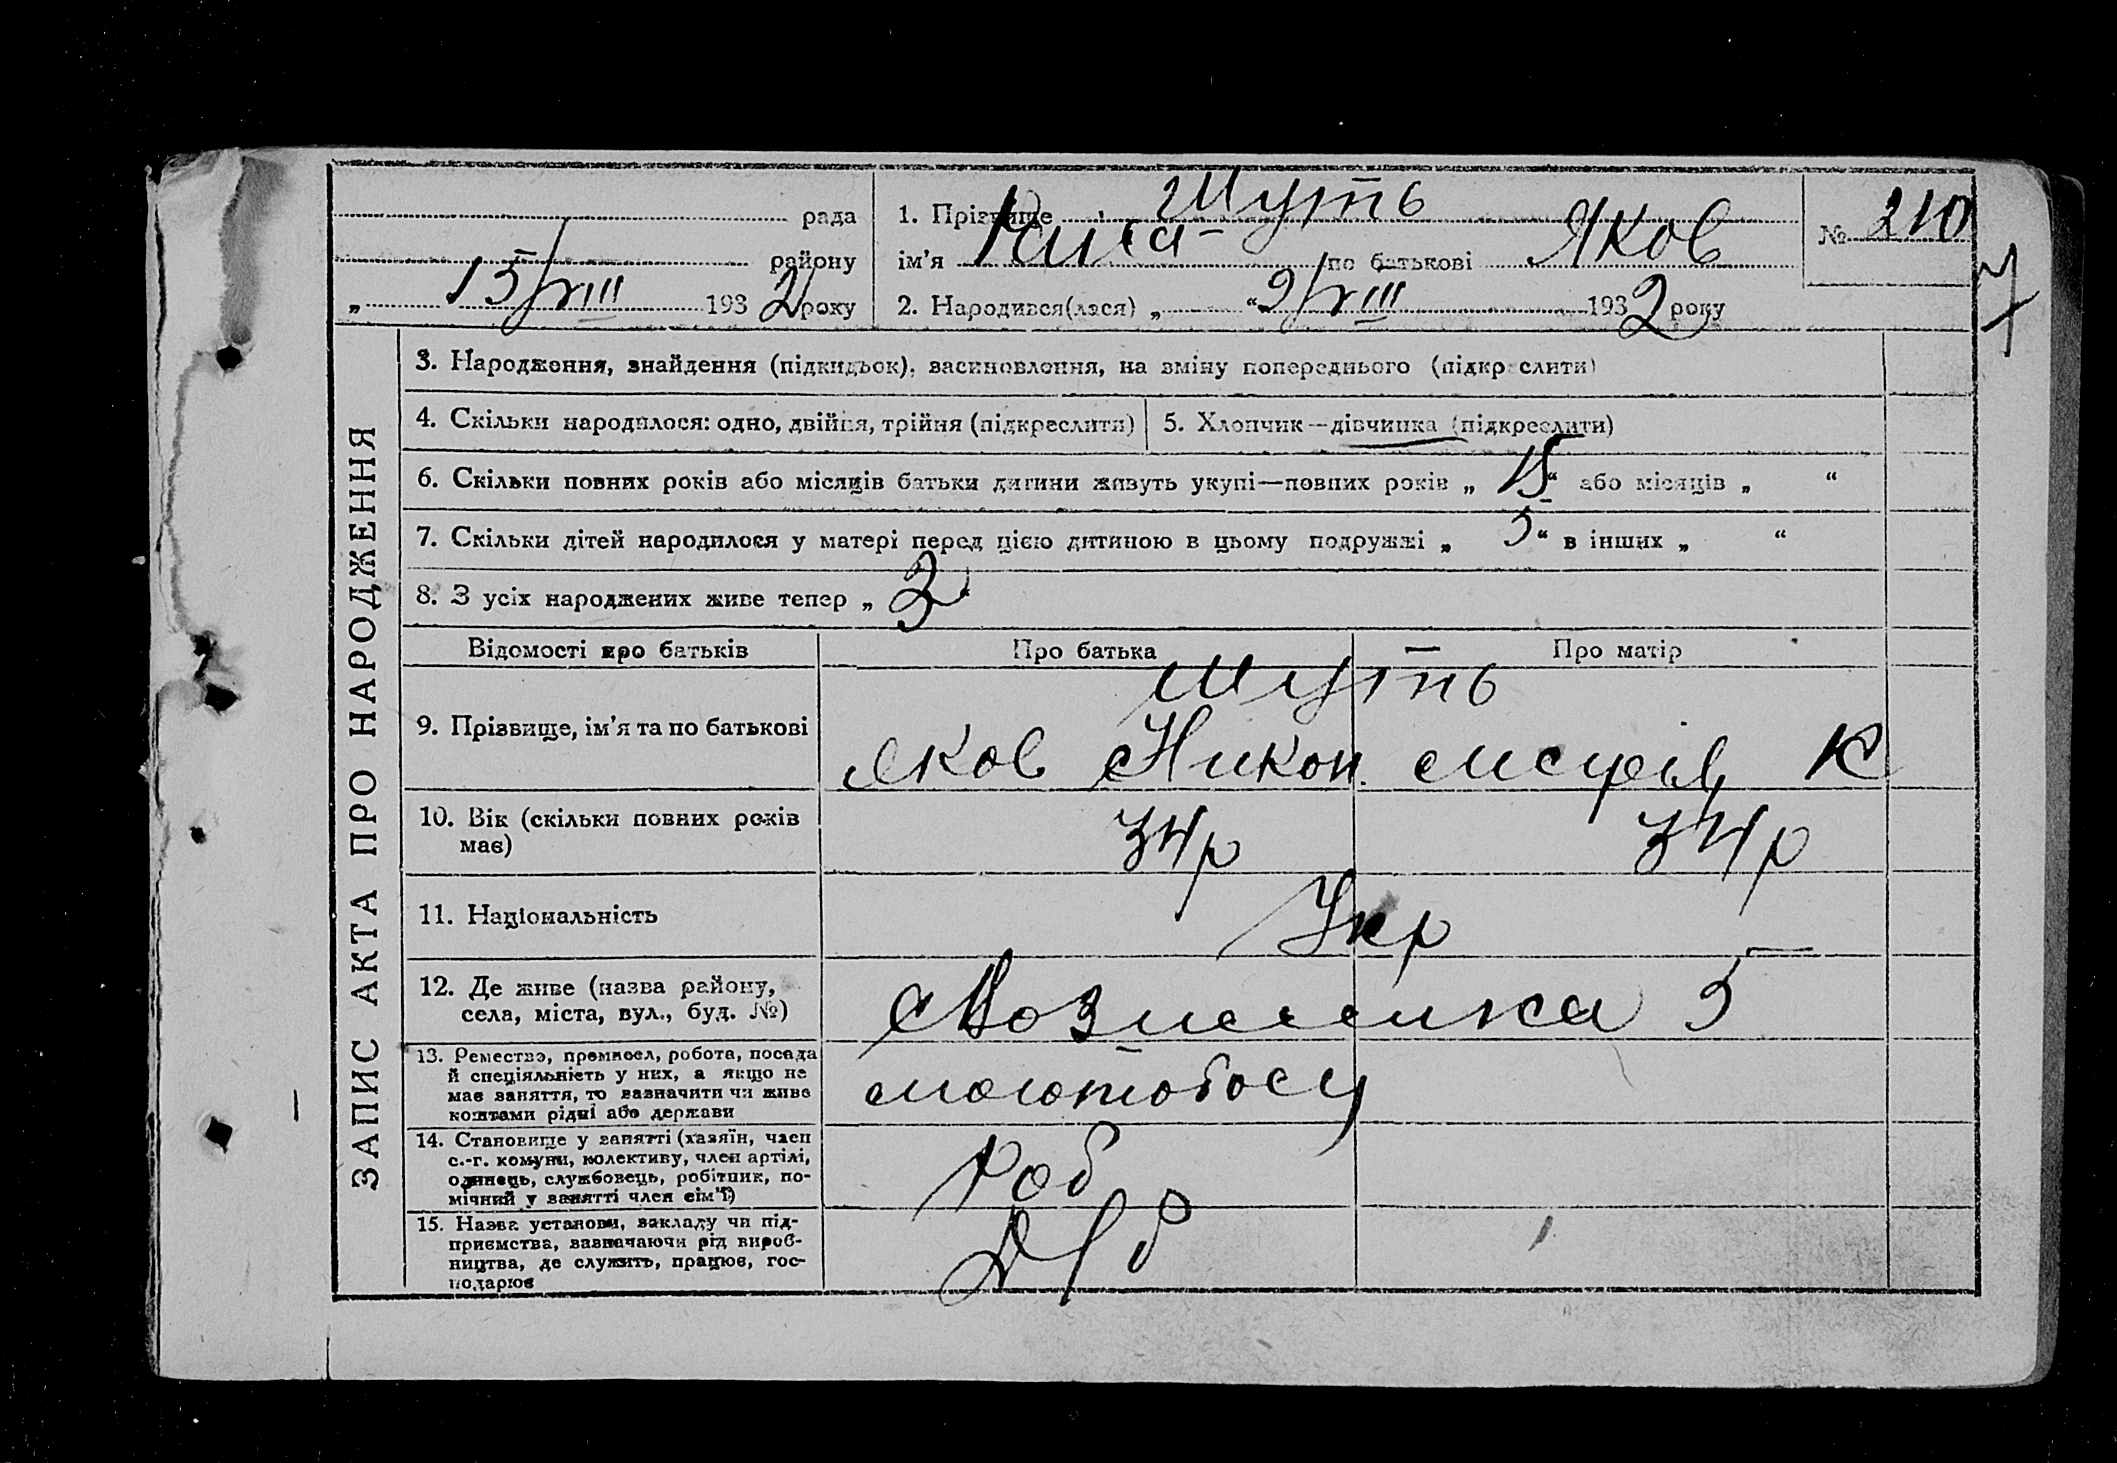 рада
району
„ 15/VIII 1932 року
1. Прізвище Шуть
ім'я Раиса по батькові Яков
2. Народився(лася) „ 2/VIII “ 1932 року
№ 210
7
ЗАПИС АКТА ПРО НАРОДЖЕННЯ
3. Народження, знайдення (підкидьок), васиновлення, на зміну попереднього (підкреслити)
4. Скільки народилося: одно, двійня, трійня (підкреслити)
5. Хлопчик—дівчинка (підкреслити)
6. Скільки повних років або місяців батьки дитини живуть укупі—повних років „ 15 “ або місяців „ “
7. Скільки дітей народилося у матері перед цією дитиною в цьому подружжі „ 5 “ в інших „ “
8. З усіх народжених живе тепер „ 3 “
Відомості про батьків
Про батька
Про матір
9. Прізвище, ім'я та по батькові
Шуть
Яков Никон.
К
10. Вік (скільки повних років
має)
34р
34р
11. Національність
Укр
12. Де живе (назва району,
села, міста, вул., буд. №)
5
13. Ремество, промисел, робота, посада
й спеціяльність у них, а якщо не
має заняття, то вазначити чи живе
коштами рідні або держави
молотобоец
14. Становище у занятті (хазяїн, член
с.-г. комуни, колективу, член артілі,
одинець, службовець, робітник, по-
мічний у занятті член сім'ї)
роб
15. Назва установи, закладу чи під-
приємства, вазначаючи рід вироб-
ництва, де служить, працює, гос-
подарює